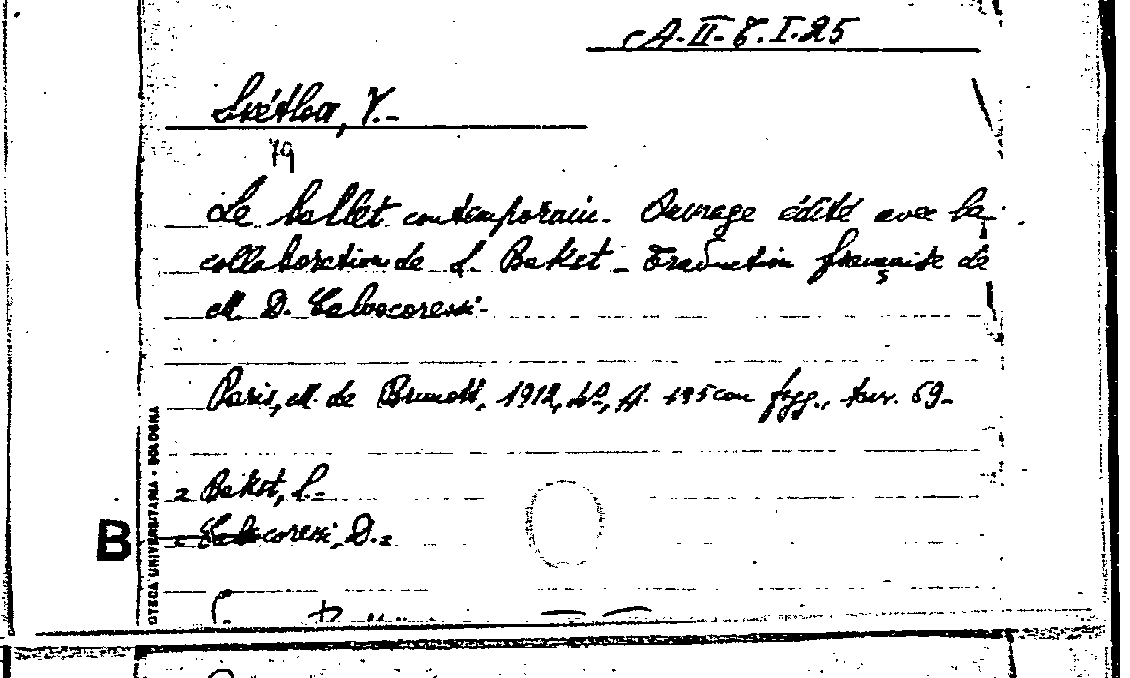 A.II-C.I.25
Svétlow, V.-
79
Le ballet contemporain. Ouvrage édité avec la
collaboration de L. Bakst - Traduction française de
M. D. Calvocoressi-
Paris, M. de Brunoff, 1912, 4º, con figg., tav. 59-
= Bakst, L.-
= Calvocoressi, D.=
OTECA UNIVERSITARIA • BOLOGNA
B